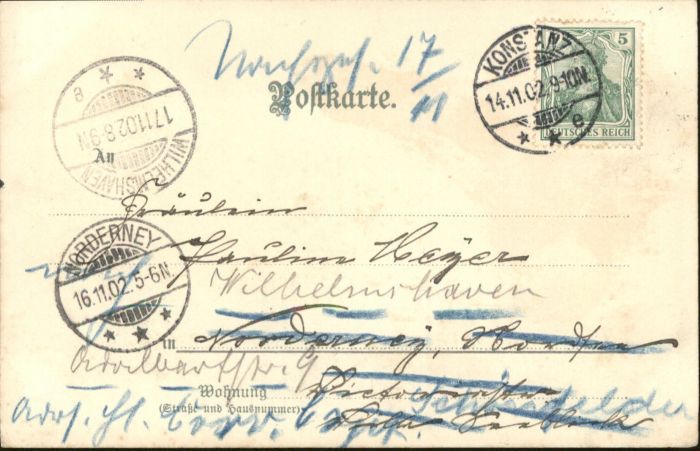 Nachges. 17/11
Postkarte.
KONSTANZ
14.11.02.9-10N.
e
5
DEUTSCHES REICH
WILHELMSHAVEN
17.11.02.8-9N
e
An
Fräulein
Pauline Meyer
Wilhelmshaven
NORDERNEY
16.11.02.5-6N.
in Norderney, Nordsee
Adalbertstr. 9
Wohnung
(Straße und Hausnummer)
Victoriastr.
Villa Seeblick